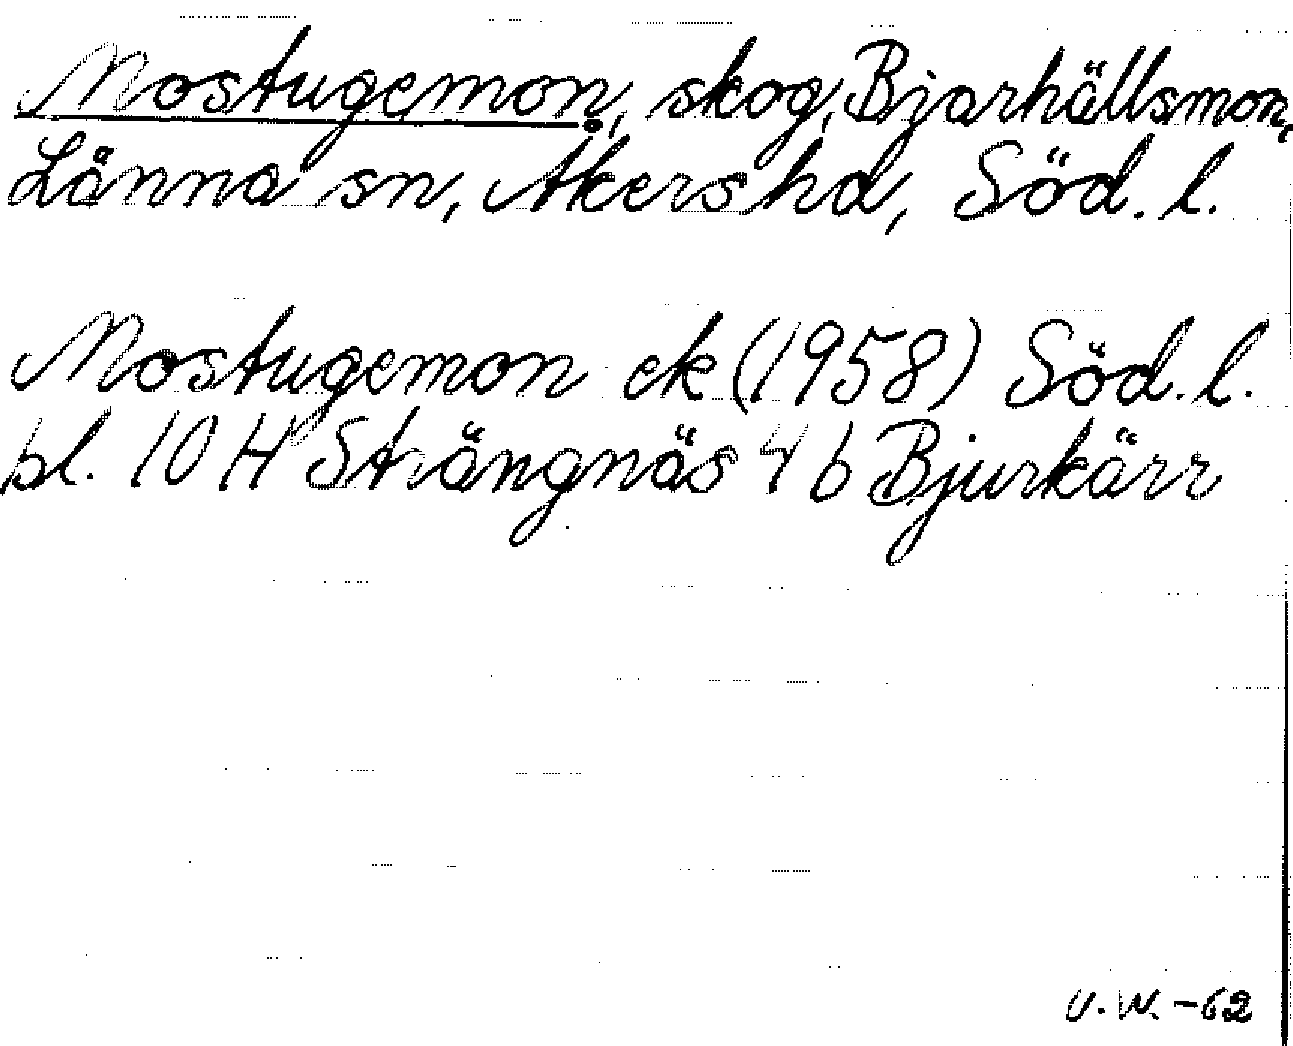 Mostugemon, skog, Bjarhällsmon,
Länna sn, Åkers hd, Söd. l.
Mostugemon ek (1958) Söd. l.
bl. 10 H Strängnäs 4 b Bjurkärr
U. W. -62